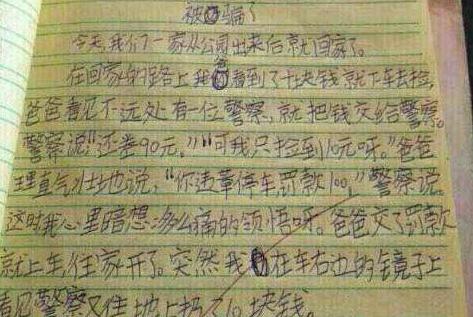 被骗了
今天,我们一家从公园出来后就回家了。
在回家的路上我爸看到了十块钱就下车去捡,
爸爸看见不远处有一位警察,就把钱交给警察。
警察说"还差90元。""可我只捡到10元呀。"爸爸
理直气壮地说,"你违章停车罚款100,"警察说
这时我心里暗想:多么痛的领悟呀。爸爸交了罚款
就上车往家开了。突然我在车右边的镜子上
看见警察又往地上扔了10块钱。